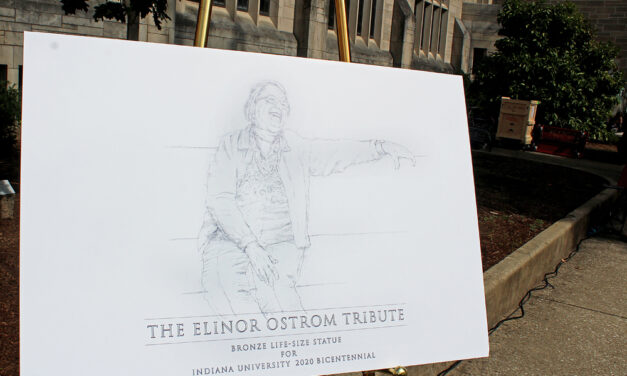 THE ELINOR OSTROM TRIBUTE
BRONZE LIFE-SIZE STATUE
FOR
INDIANA UNIVERSITY 2020 BICENTENNIAL